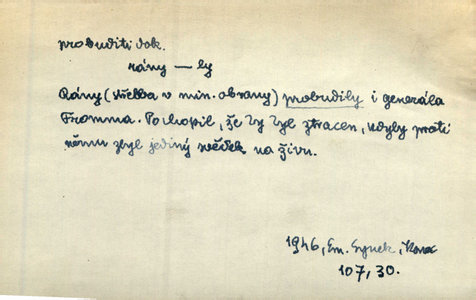 probuditi dok.
rány — ly
Rány (střelba v min. obrany) probudily i generála
Fromma. Pochopil, že by byl ztracen, kdyby proti
němu zbyl jediný svědek na živu.
1946, Em. Synek, Konec
107, 30.